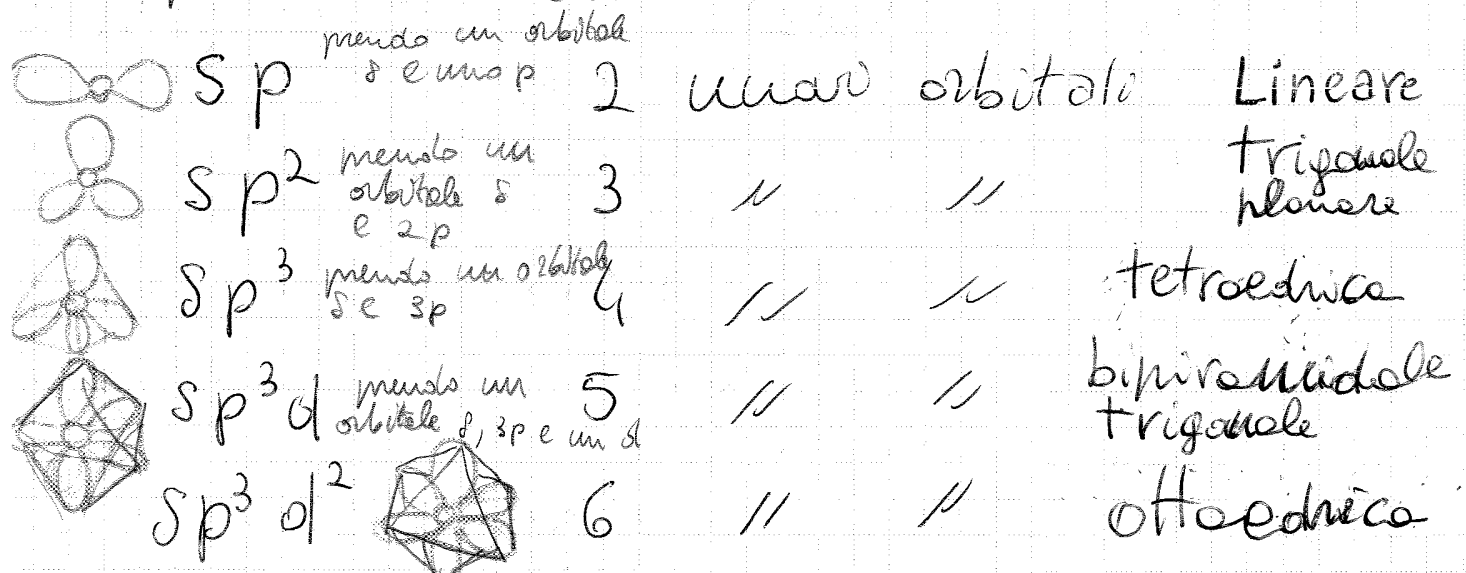 sp prendo un orbitale s e uno p 2 nuovi orbitali Lineare
sp² prendo un orbitale s e 2p 3 " " trigonale planare
sp³ prendo un orbitale s e 3p 4 " " tetraedrica
sp³d prendo un orbitale s, 3p e un d 5 " " bipiramidale trigonale
sp³d² 6 " " ottaedrica